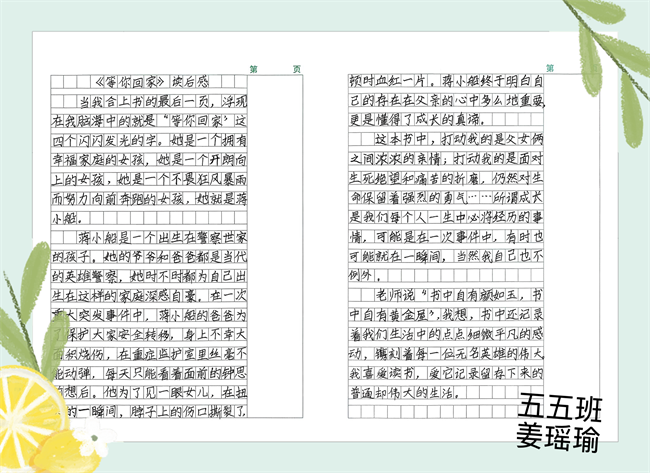 第 页
《等你回家》读后感
当我合上书的最后一页，浮现
在我脑海中的就是“等你回家”这
四个闪闪发光的字。她是一个拥有
幸福家庭的女孩，她是一个开朗向
上的女孩，她是一个不畏狂风暴雨
而努力向前奔跑的女孩，她就是蒋
小艇。
蒋小艇是一个出生在警察世家
的孩子。她的爷爷和爸爸都是当代
的英雄警察，她时不时都为自己出
生在这样的家庭深感自豪。在一次
大突发事件中，蒋小艇的爸爸为
了保护大家安全转移，身上不幸大
面积烧伤，在重症监护室里丝毫不
能动弹，每天只能看着面前的钟思
想后。他为了见一眼女儿，在扭
的一瞬间，脖子上的伤口撕裂了
第
顿时血红一片。蒋小艇终于明白自
己的存在在父亲的心中多么地重要，
更是懂得了成长的真谛。
这本书中，打动我的是父女俩
之间浓浓的亲情；打动我的是面对
生死绝望和痛苦的折磨，仍然对生
命保留着强烈的勇气……所谓成长
是我们每个人一生中必将经历的事
情，可能是在一次事件中，有时也
可能就在一瞬间，当然我自己也不
例外。
老师说“书中自有颜如玉，书
中自有黄金屋”，我想，书中还记录
着我们生活中的点点细微平凡的感
动，镌刻着每一位无名英雄的伟大
我喜爱读书，爱它记录留存下来的
普通却伟大的生活。
五五班
姜瑶瑜